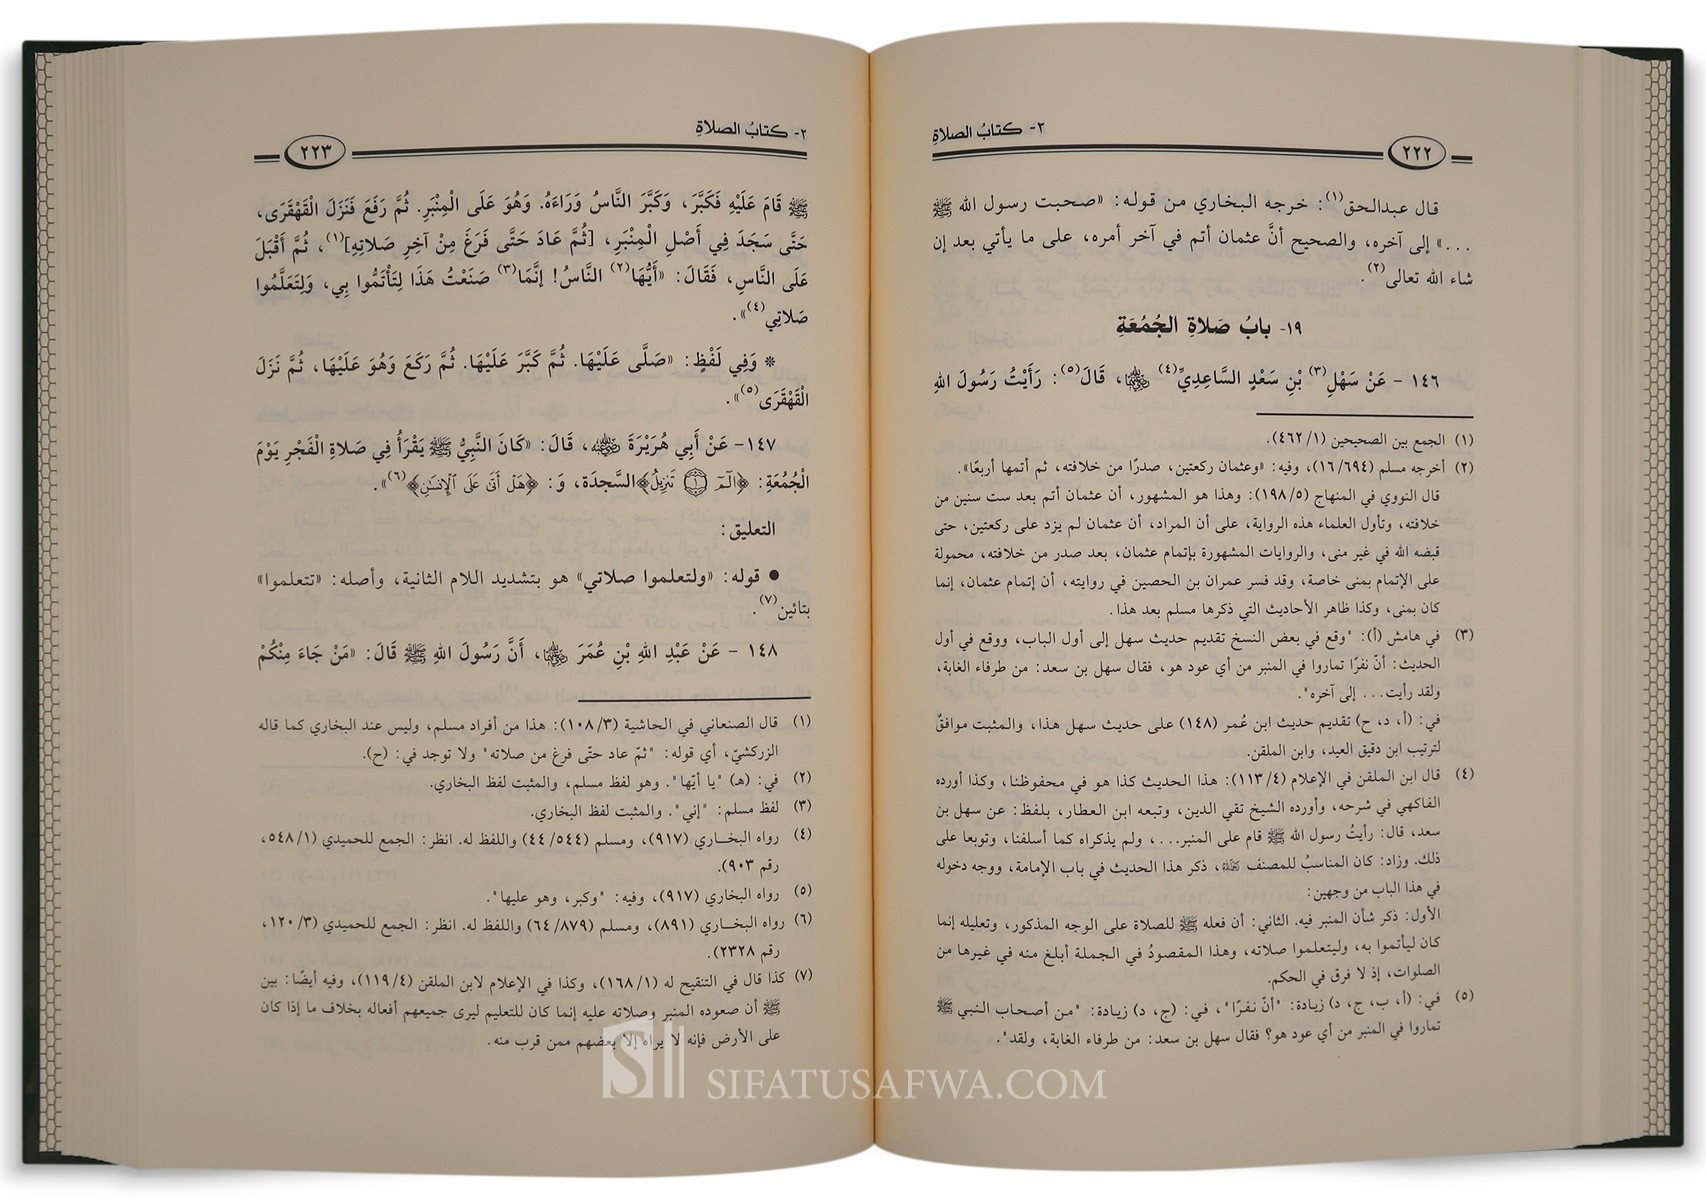 ٢- كتابُ الصلاةِ
٢٢٢
قال عبدالحق(١): خرجه البخاري من قوله: «صحبت رسول الله ﷺ
...» إلى آخره، والصحيح أنَّ عثمان أتم في آخر أمره، على ما يأتي بعد إن
شاء الله تعالى(٢).
١٩- بابُ صَلاةِ الجُمُعَةِ
١٤٦ - عَنْ سَهْلِ(٣) بْنِ سَعْدٍ السَّاعِدِيِّ(٤) رضي الله عنه، قَالَ(٥): رَأَيْتُ رَسُولَ اللهِ
(١) الجمع بين الصحيحين (٤٦٢/١).
(٢) أخرجه مسلم (١٦/٦٩٤)، وفيه: «وعثمان ركعتين، صدرًا من خلافته، ثم أتمها أربعًا».
قال النووي في المنهاج (١٩٨/٥): وهذا هو المشهور، أن عثمان أتم بعد ست سنين من
خلافته، وتأول العلماء هذه الرواية، على أن المراد، أن عثمان لم يزد على ركعتين، حتى
قبضه الله في غير منى، والروايات المشهورة بإتمام عثمان، بعد صدر من خلافته، محمولة
على الإتمام بمنى خاصة، وقد فسر عمران بن الحصين في روايته، أن إتمام عثمان، إنما
كان بمنى، وكذا ظاهر الأحاديث التي ذكرها مسلم بعد هذا.
(٣) في هامش (أ): "وقع في بعض النسخ تقديم حديث سهل إلى أول الباب، ووقع في أول
الحديث: أنّ نفرًا تماروا في المنبر من أي عود هو، فقال سهل بن سعد: من طرفاء الغابة،
ولقد رأيت... إلى آخره".
في: (أ، د، ح) تقديم حديث ابن عُمر (١٤٨) على حديث سهل هذا، والمثبت موافقٌ
لترتيب ابن دقيق العيد، وابن الملقن.
(٤) قال ابن الملقن في الإعلام (١١٣/٤): هذا الحديث كذا هو في محفوظنا، وكذا أورده
الفاكهي في شرحه، وأورده الشيخ تقي الدين، وتبعه ابن العطار، بلفظ: عن سهل بن
سعد، قال: رأيتُ رسول الله ﷺ قام على المنبر...، ولم يذكراه كما أسلفنا، وتوبعا على
ذلك. وزاد: كان المناسبُ للمصنف رحمه الله، ذكر هذا الحديث في باب الإمامة، ووجه دخوله
في هذا الباب من وجهين:
الأول: ذكر شأن المنبر فيه. الثاني: أن فعله ﷺ للصلاة على الوجه المذكور، وتعليله إنما
كان ليأتموا به، وليتعلموا صلاته، وهذا المقصودُ في الجملة أبلغ منه في غيرها من
الصلوات، إذ لا فرق في الحكم.
(٥) في: (أ، ب، ج، د) زيادة: "أنّ نفرًا"، في: (ج، د) زيادة: "من أصحاب النبي ﷺ
تماروا في المنبر من أي عود هو؟ فقال سهل بن سعد: من طرفاء الغابة، ولقد".
٢- كتابُ الصلاةِ
٢٢٣
ﷺ قَامَ عَلَيْهِ فَكَبَّرَ، وَكَبَّرَ النَّاسُ وَرَاءَهُ. وَهُوَ عَلَى الْمِنْبَرِ. ثُمَّ رَفَعَ فَنَزَلَ الْقَهْقَرَى،
حَتَّى سَجَدَ فِي أَصْلِ الْمِنْبَرِ، [ثُمَّ عَادَ حَتَّى فَرَغَ مِنْ آخِرِ صَلاتِهِ](١)، ثُمَّ أَقْبَلَ
عَلَى النَّاسِ، فَقَالَ: «أَيُّهَا(٢) النَّاسُ! إنَّمَا(٣) صَنَعْتُ هَذَا لِتَأْتَمُّوا بِي، وَلِتَعَلَّمُوا
صَلاتِي(٤)».
* وَفِي لَفْظٍ: «صَلَّى عَلَيْهَا. ثُمَّ كَبَّرَ عَلَيْهَا. ثُمَّ رَكَعَ وَهُوَ عَلَيْهَا، ثُمَّ نَزَلَ
الْقَهْقَرَى(٥)».
١٤٧- عَنْ أَبِي هُرَيْرَةَ رضي الله عنه، قَالَ: «كَانَ النَّبِيُّ ﷺ يَقْرَأُ فِي صَلاةِ الْفَجْرِ يَوْمَ
الْجُمُعَةِ: ﴿الٓمٓ ۝١ تَنزِيلُ﴾السَّجدَة، وَ: ﴿هَلْ أَتَىٰ عَلَى ٱلْإِنسَٰنِ﴾(٦)».
التعليق:
● قوله: «ولتعلموا صلاتي» هو بتشديد اللام الثانية، وأصله: «تتعلموا»
بتائين(٧).
١٤٨ - عَنْ عَبْدِ اللهِ بْنِ عُمَرَ رضي الله عنهما، أَنَّ رَسُولَ اللهِ ﷺ قَالَ: «مَنْ جَاءَ مِنْكُمْ
(١) قال الصنعاني في الحاشية (١٠٨/٣): هذا من أفراد مسلم، وليس عند البخاري كما قاله
الزركشيّ، أي قوله: "ثمّ عاد حتّى فرغ من صلاته" ولا توجد في: (ح).
(٢) في: (هـ) "يا أيّها". وهو لفظ مسلم، والمثبت لفظ البخاري.
(٣) لفظ مسلم: "إني". والمثبت لفظ البخاري.
(٤) رواه البخاري (٩١٧)، ومسلم (٤٤/٥٤٤) واللفظ له. انظر: الجمع للحميدي (٥٤٨/١،
رقم ٩٠٣).
(٥) رواه البخاري (٩١٧)، وفيه: "وكبر، وهو عليها".
(٦) رواه البخاري (٨٩١)، ومسلم (٦٤/٨٧٩) واللفظ له. انظر: الجمع للحميدي (١٢٠/٣،
رقم ٢٣٢٨).
(٧) كذا قال في التنقيح له (١٦٨/١)، وكذا في الإعلام لابن الملقن (١١٩/٤)، وفيه أيضًا: بين
ﷺ أن صعوده المنبر وصلاته عليه إنما كان للتعليم ليرى جميعهم أفعاله بخلاف ما إذا كان
على الأرض فإنه لا يراه إلا بعضهم ممن قرب منه.
SIFATUSAFWA.COM